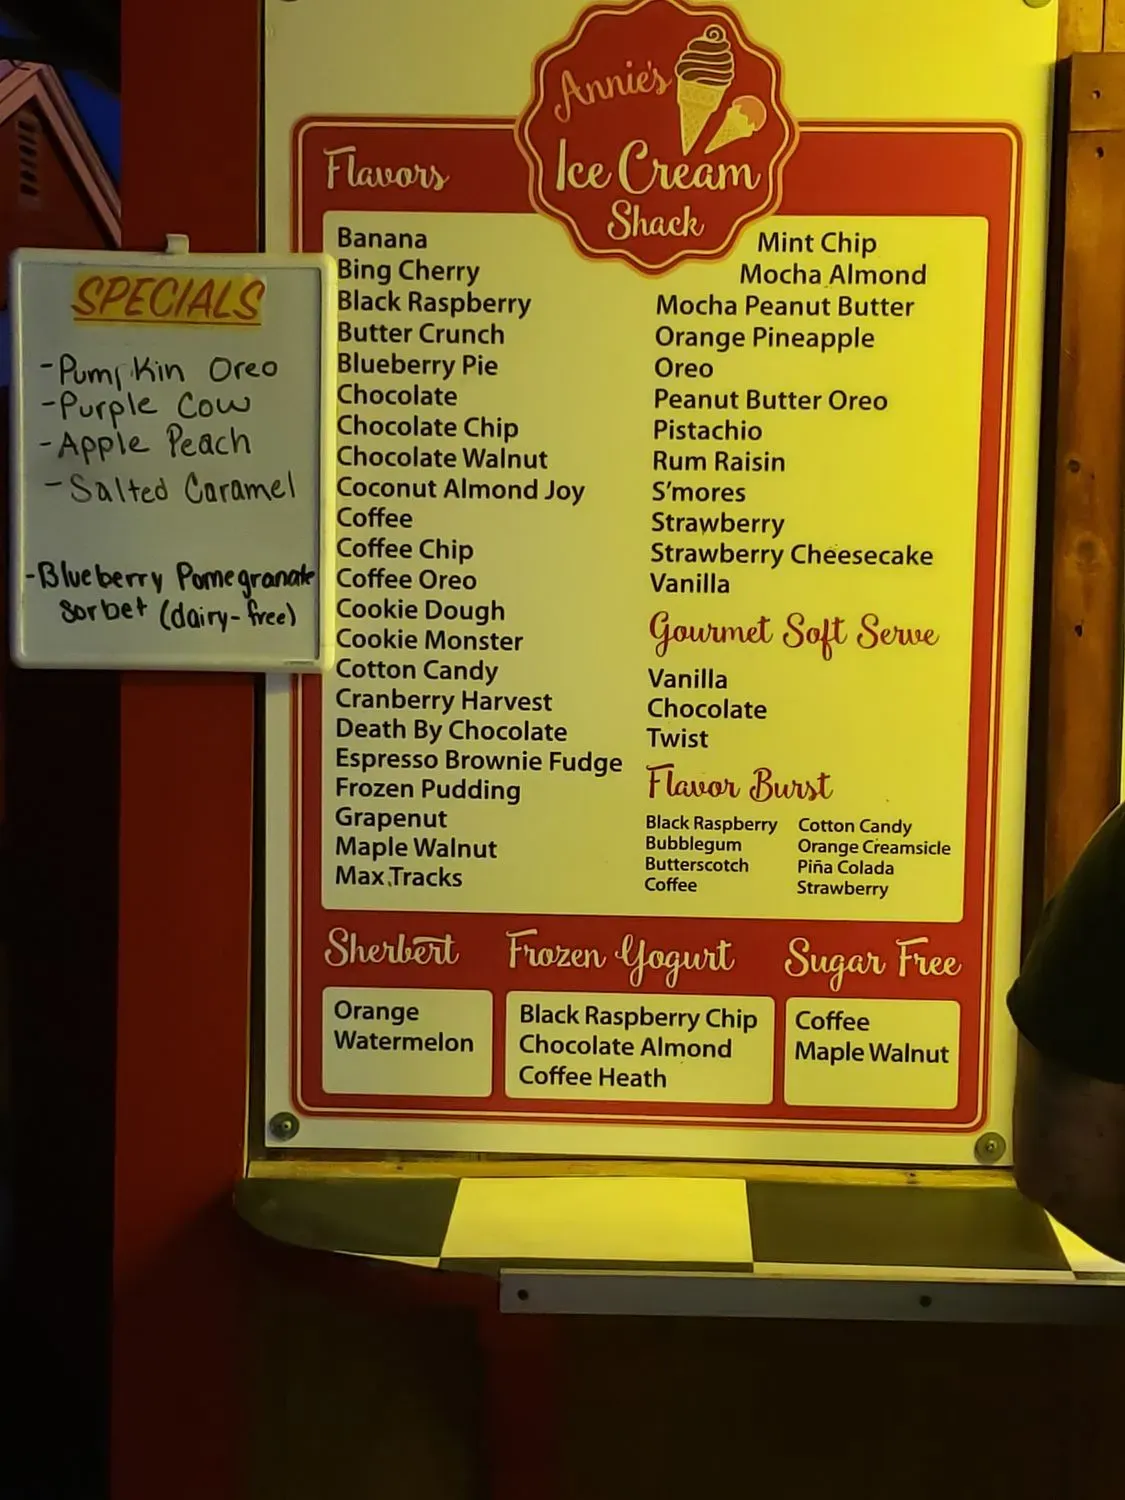 Annie's
Ice Cream
Shack
Flavors
Banana
Bing Cherry
Black Raspberry
Butter Crunch
Blueberry Pie
Chocolate
Chocolate Chip
Chocolate Walnut
Coconut Almond Joy
Coffee
Coffee Chip
Coffee Oreo
Cookie Dough
Cookie Monster
Cotton Candy
Cranberry Harvest
Death By Chocolate
Espresso Brownie Fudge
Frozen Pudding
Grapenut
Maple Walnut
Max Tracks
Mint Chip
Mocha Almond
Mocha Peanut Butter
Orange Pineapple
Oreo
Peanut Butter Oreo
Pistachio
Rum Raisin
S'mores
Strawberry
Strawberry Cheesecake
Vanilla
Gourmet Soft Serve
Vanilla
Chocolate
Twist
Flavor Burst
Black Raspberry
Bubblegum
Butterscotch
Coffee
Cotton Candy
Orange Creamsicle
Piña Colada
Strawberry
Sherbert
Orange
Watermelon
Frozen Yogurt
Black Raspberry Chip
Chocolate Almond
Coffee Heath
Sugar Free
Coffee
Maple Walnut
SPECIALS
-Pumpkin Oreo
-Purple Cow
-Apple Peach
-Salted Caramel
-Blueberry Pomegranate
Sorbet (dairy-free)